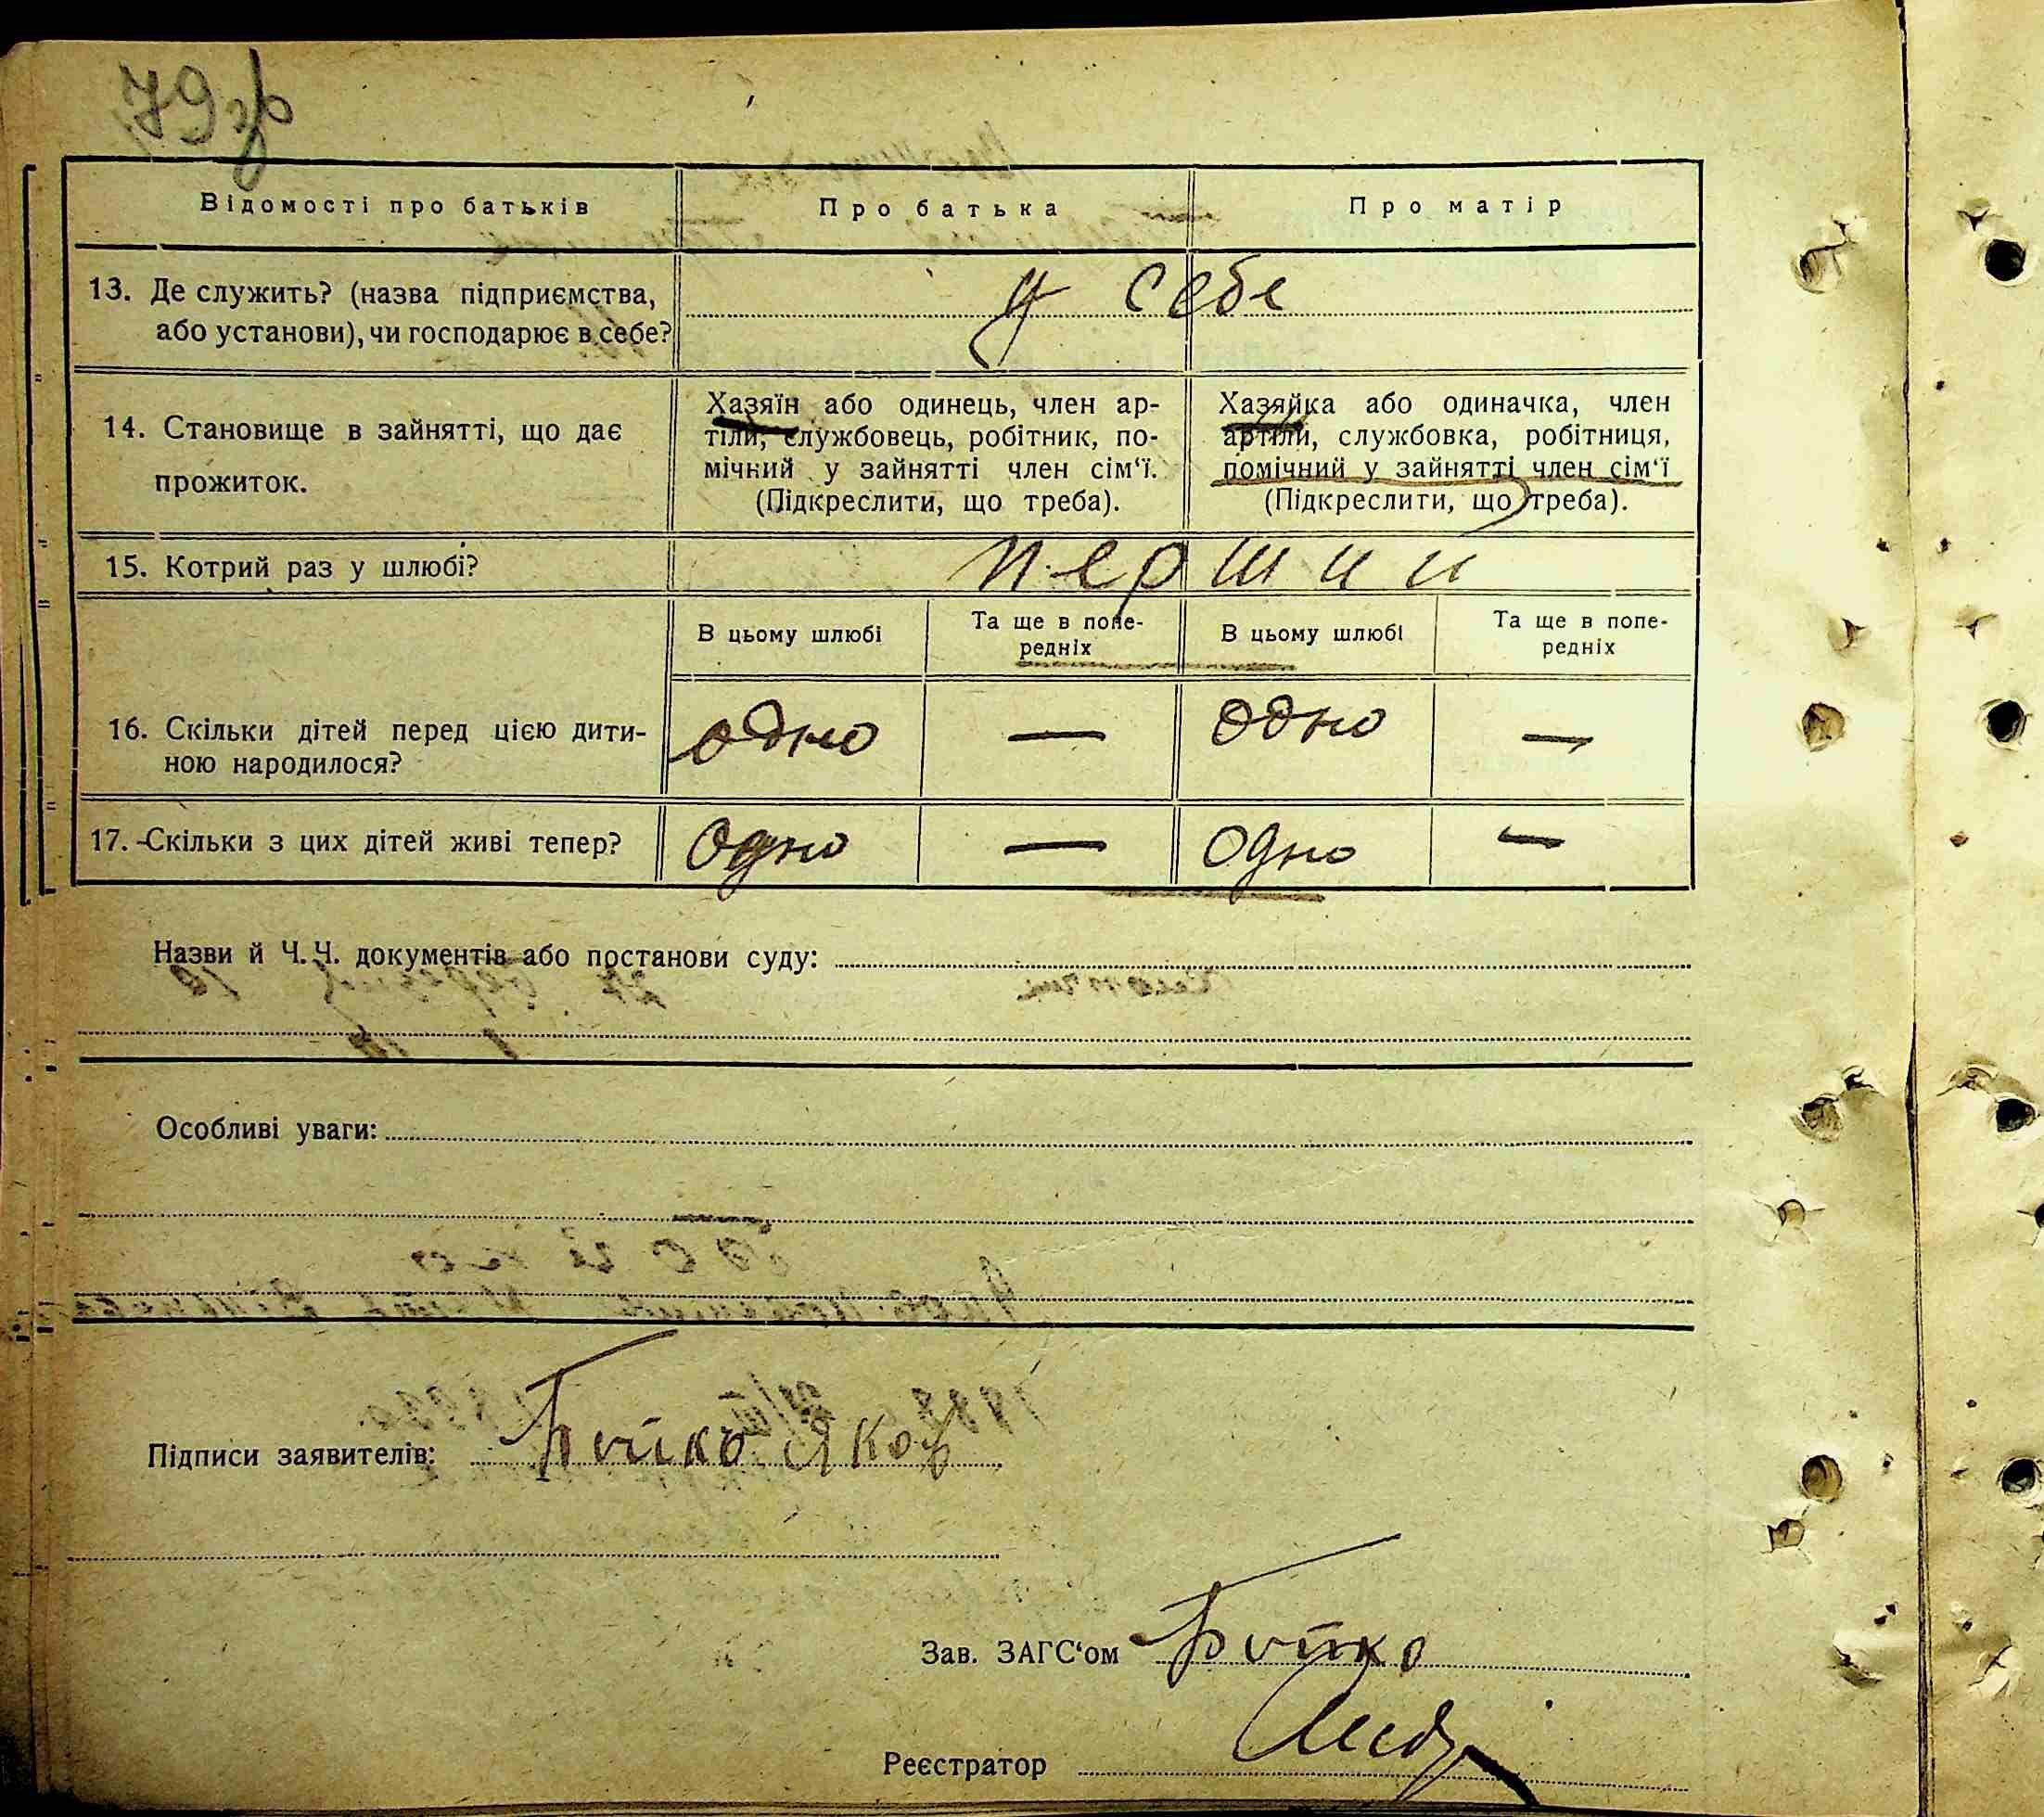 79зв
Відомості про батьків
Про батька
Про матір
13. Де служить? (назва підприємства,
або установи), чи господарює в себе?
у себе
14. Становище в зайнятті, що дає
прожиток.
Хазяїн або одинець, член ар-
тіли, службовець, робітник, по-
мічний у зайнятті член сім‘ї.
(Підкреслити, що треба).
Хазяйка або одиначка, член
артіли, службовка, робітниця,
помічний у зайнятті член сім‘ї
(Підкреслити, що треба).
15. Котрий раз у шлюбі?
перший
В цьому шлюбі
Та ще в попе-
редніх
В цьому шлюбі
Та ще в попе-
редніх
16. Скільки дітей перед цією дити-
ною народилося?
одно — одно —
17. Скільки з цих дітей живі тепер?
одно — одно —
Назви й Ч.Ч. документів або постанови суду:
Особливі уваги:
Підписи заявителів: Бойко Яков
Зав. ЗАГС‘ом Бойко
Реєстратор